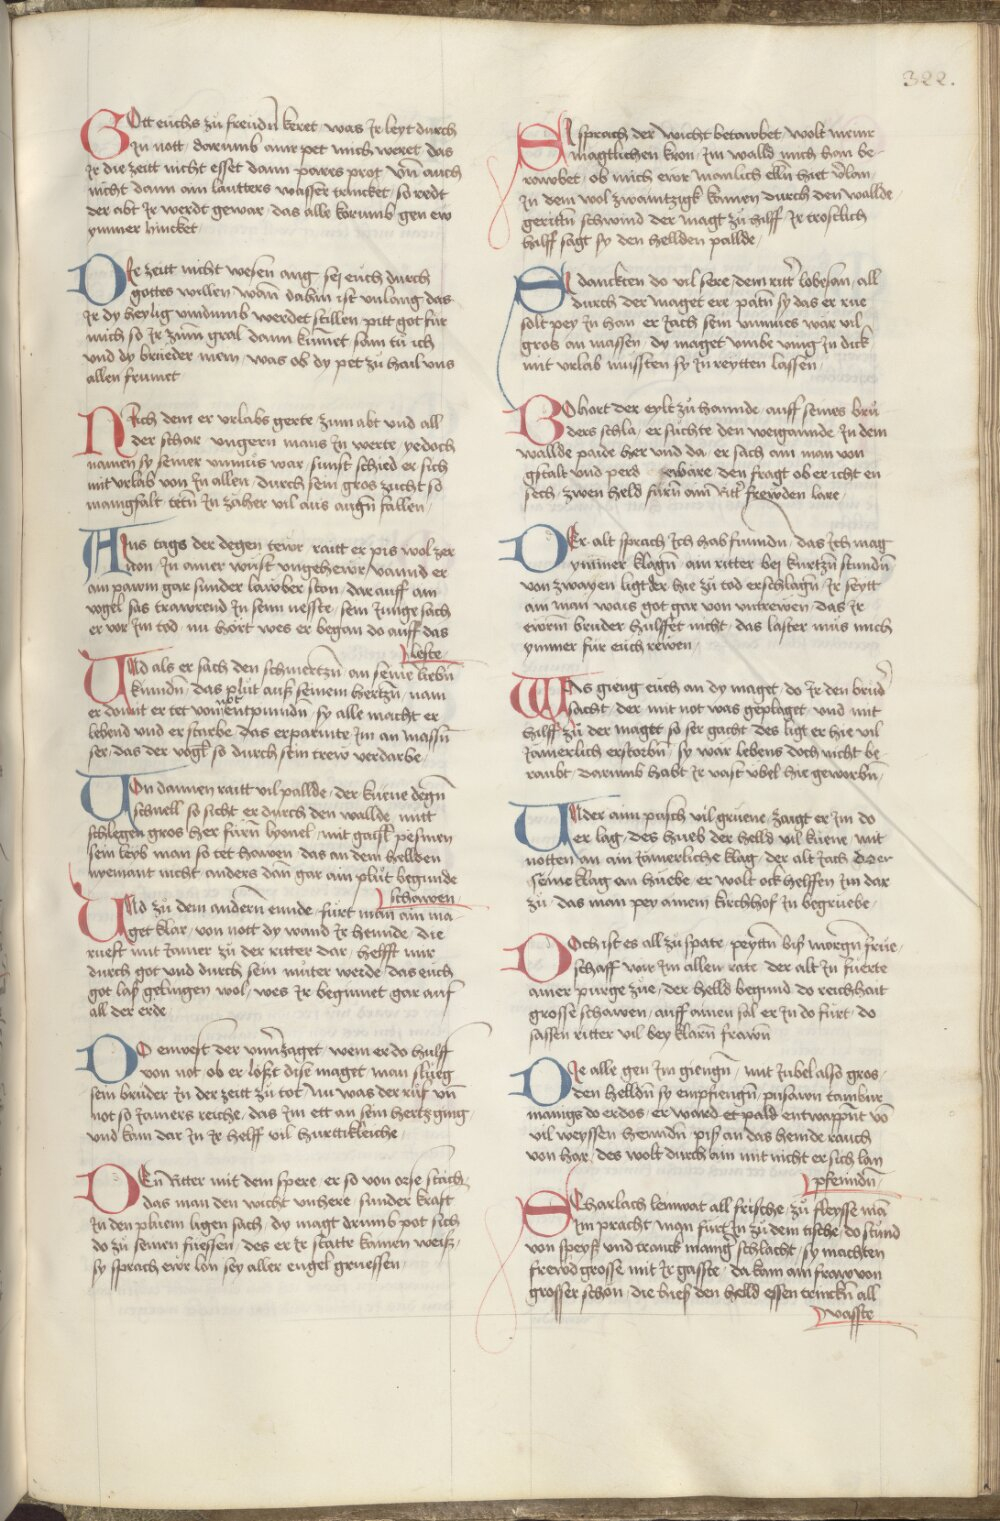 322.
Gott euchs zu freudn̄ keret / was Ir leyt durch
In nott / darumb amr pet mich weret / das
Ir die zeitt nicht esset dann parrs prot / vn̄ auch
nicht dann ain lautters wasser trincket / so redt
der abt Ir werdt gewar / das alle korumb gen ew
ymmer hincket /
Die zeitt nicht wesen ang / sej euch durch
gottes willen / wan̄ dahin ist vnlang / das
Ir dy heylig vmdumb werdet stillen / pitt got für
mich so Ir zum gral dann kumet / sam tu ich
vnd dy brueder mein / was ob dy pet zu hail vns
allen frumet
Nach dem er vrlabs gerte / zum abt vnd all
der schar / vngern mans In werte / yedoch
namen sy seiner vmuis war / sunst schied er sich
mit vrlab von In allen / durch sein gros zucht so
manigfalt / tetn̄ In zäher vil aus augn̄ fallen /
Ains tags der degen tewr / raitt er pis wol zer
non / In ainer wust vngehewr / vannd er
ain pawm gar sunder lawber ston / dar auff ain
vogel sas trawrend In seim nesste / sein Junge sach
er vor Im tod / nu hort wes er began do auff das
leste /
Und als er sach den schmertzn̄ / an seine liebn̄
kinndn̄ / das plut aus̈ seinem hertzn̄ / nam
er domit er tet von not entpinndn̄ / sy alle macht er
lebend vnd er starbe / das erparmte Im an massn̄
ser / das der vogl̄ so durch sein trew verdarbe /
Von dannen raitt vil pallde / der kuene degn̄
schnell / so sicht er durch den wallde / mitt
schlegen gros her furn̄ lyonel / mit gaisl̄ pesmen
sein leyb man so tet hawen / das an dem hellden
nyemant nicht anders dan̄ gar ain plut begunde
schawen
Und zu dem andern̄ ennde / furt man ain ma-
get klar / von nott dy wand Ir hennde / die
rueft mit Jamer zu der ritter dar / hellft mir
durch got vnd durch sein muter werde / das euch
got las gelingen wol / wes Ir beginnet gar auf
all der erde
Do enwest der vnuerzaget / wem er do hulff
von not / ob er lost dise maget / man slueg
sein bruder In der zeitt zu tot / Nu was der ruf vn̄
not so Jamers reiche / das Im ett an sein hertz ging /
vnd kam dar In Ir helff vil hurttikleiche /
Den Ritter mit dem spere / er so von orse stach /
das man den wicht vnhere / sunder kraft
In den pluem ligen sach / dy magt drumb pot sich
do zu seinen fuessen / des er Ir statte kainen weis /
sy sprach ewr lon sey aller engel gruessen /
Sy sprach der wicht betawbet / wolt meinr
magtlichen kron / Im walld mich han be-
rawbet / ob mich ewr manlich elln̄ hiet v̈lan /
In dem wol zwaintzigk komen durch den wallde
gerittn̄ schwind der magt zu hilff / Ir trostlich
hilff sagt sy den hellden pallde /
Sy danckten do vil sere / dem rittr̄ lobesan / all
durch der maget ere / patn̄ sy das er rue
solt pey In han / er Jach sein vnmues war vil
gros an massen / dy maget vmbe ving In dick
mit vrlab muessten sy In reytten lassen /
Bohort der eylt zu hannde / auff seines bru-
ders schla / er suchte den weigannde / In dem
wallde paide her vnd da / er sach ain man von
gstalt vnd perd eware / den fragt ob er icht en
sech / zwen held furn̄ ain̄ rittr̄ frewden lare /
Der alt sprach Ich hab funndn̄ / das Ich mag
ymmer klagn̄ / ain ritter bej kurtzn̄ stundn̄
von zwayen ligt der hie zu tod erschlagn̄ / Ir seytt
ain man wais got gar von vntrewen / das Ir
ewrm bruder hulffet nicht / das laster mus mich
ymmer für euch rewen /
Was gieng euch an dy maget / do Ir den brudr̄
sacht / der mit not was geplaget / vnd mit
hilff zu der maget so ser gacht / des ligt er hie vil
Jämerlich erstorbn̄ / sy war lebens doch nicht be-
raubt / darumb habt Ir vast übel hie geworbn̄ /
Under aim pusch vil gruene / zaigt er Im do
er lag / des hueb der helld vil kuene / mit
notten an ain Jamerliche klag / der alt Jach do er
seine klag an huebe / er wolt ock helffen Im dar
zu / das man pey ainem kirchhof In begruebe /
Doch ist es all zu spate / peyttn̄ bis morgn̄ frue /
schaff wir Im allen rate / der alt In fuerte
ainer purge zue / der helld begund do reichhait
grosse schawen / auff ainen sal er In do furt / do
sassen ritter vil bey klarn̄ frawn̄
Die alle gen Im giengn̄ / mit Jubel also gros /
den helldn̄ sy empfiengn̄ / pusawn tambur
manigs do erdos / er ward et pald entwappn̄t vo̅
vil weyssen henndn̄ pis an das hemde rauch
von har / des wolt durch ain mit nicht er sich lan
pfenndn̄ /
Scharlach leinwat all frische / zu fleysse ma̅
Im pracht / man furt In zu dem tische / do stund
von speys̈ vnd tranck manigr̄ schlacht / sy machten
frewd grosse mit Ir gasste / da kam ain fraw von
grosser schön / die hies̈ den helld essen trinckn̄ all
vasste